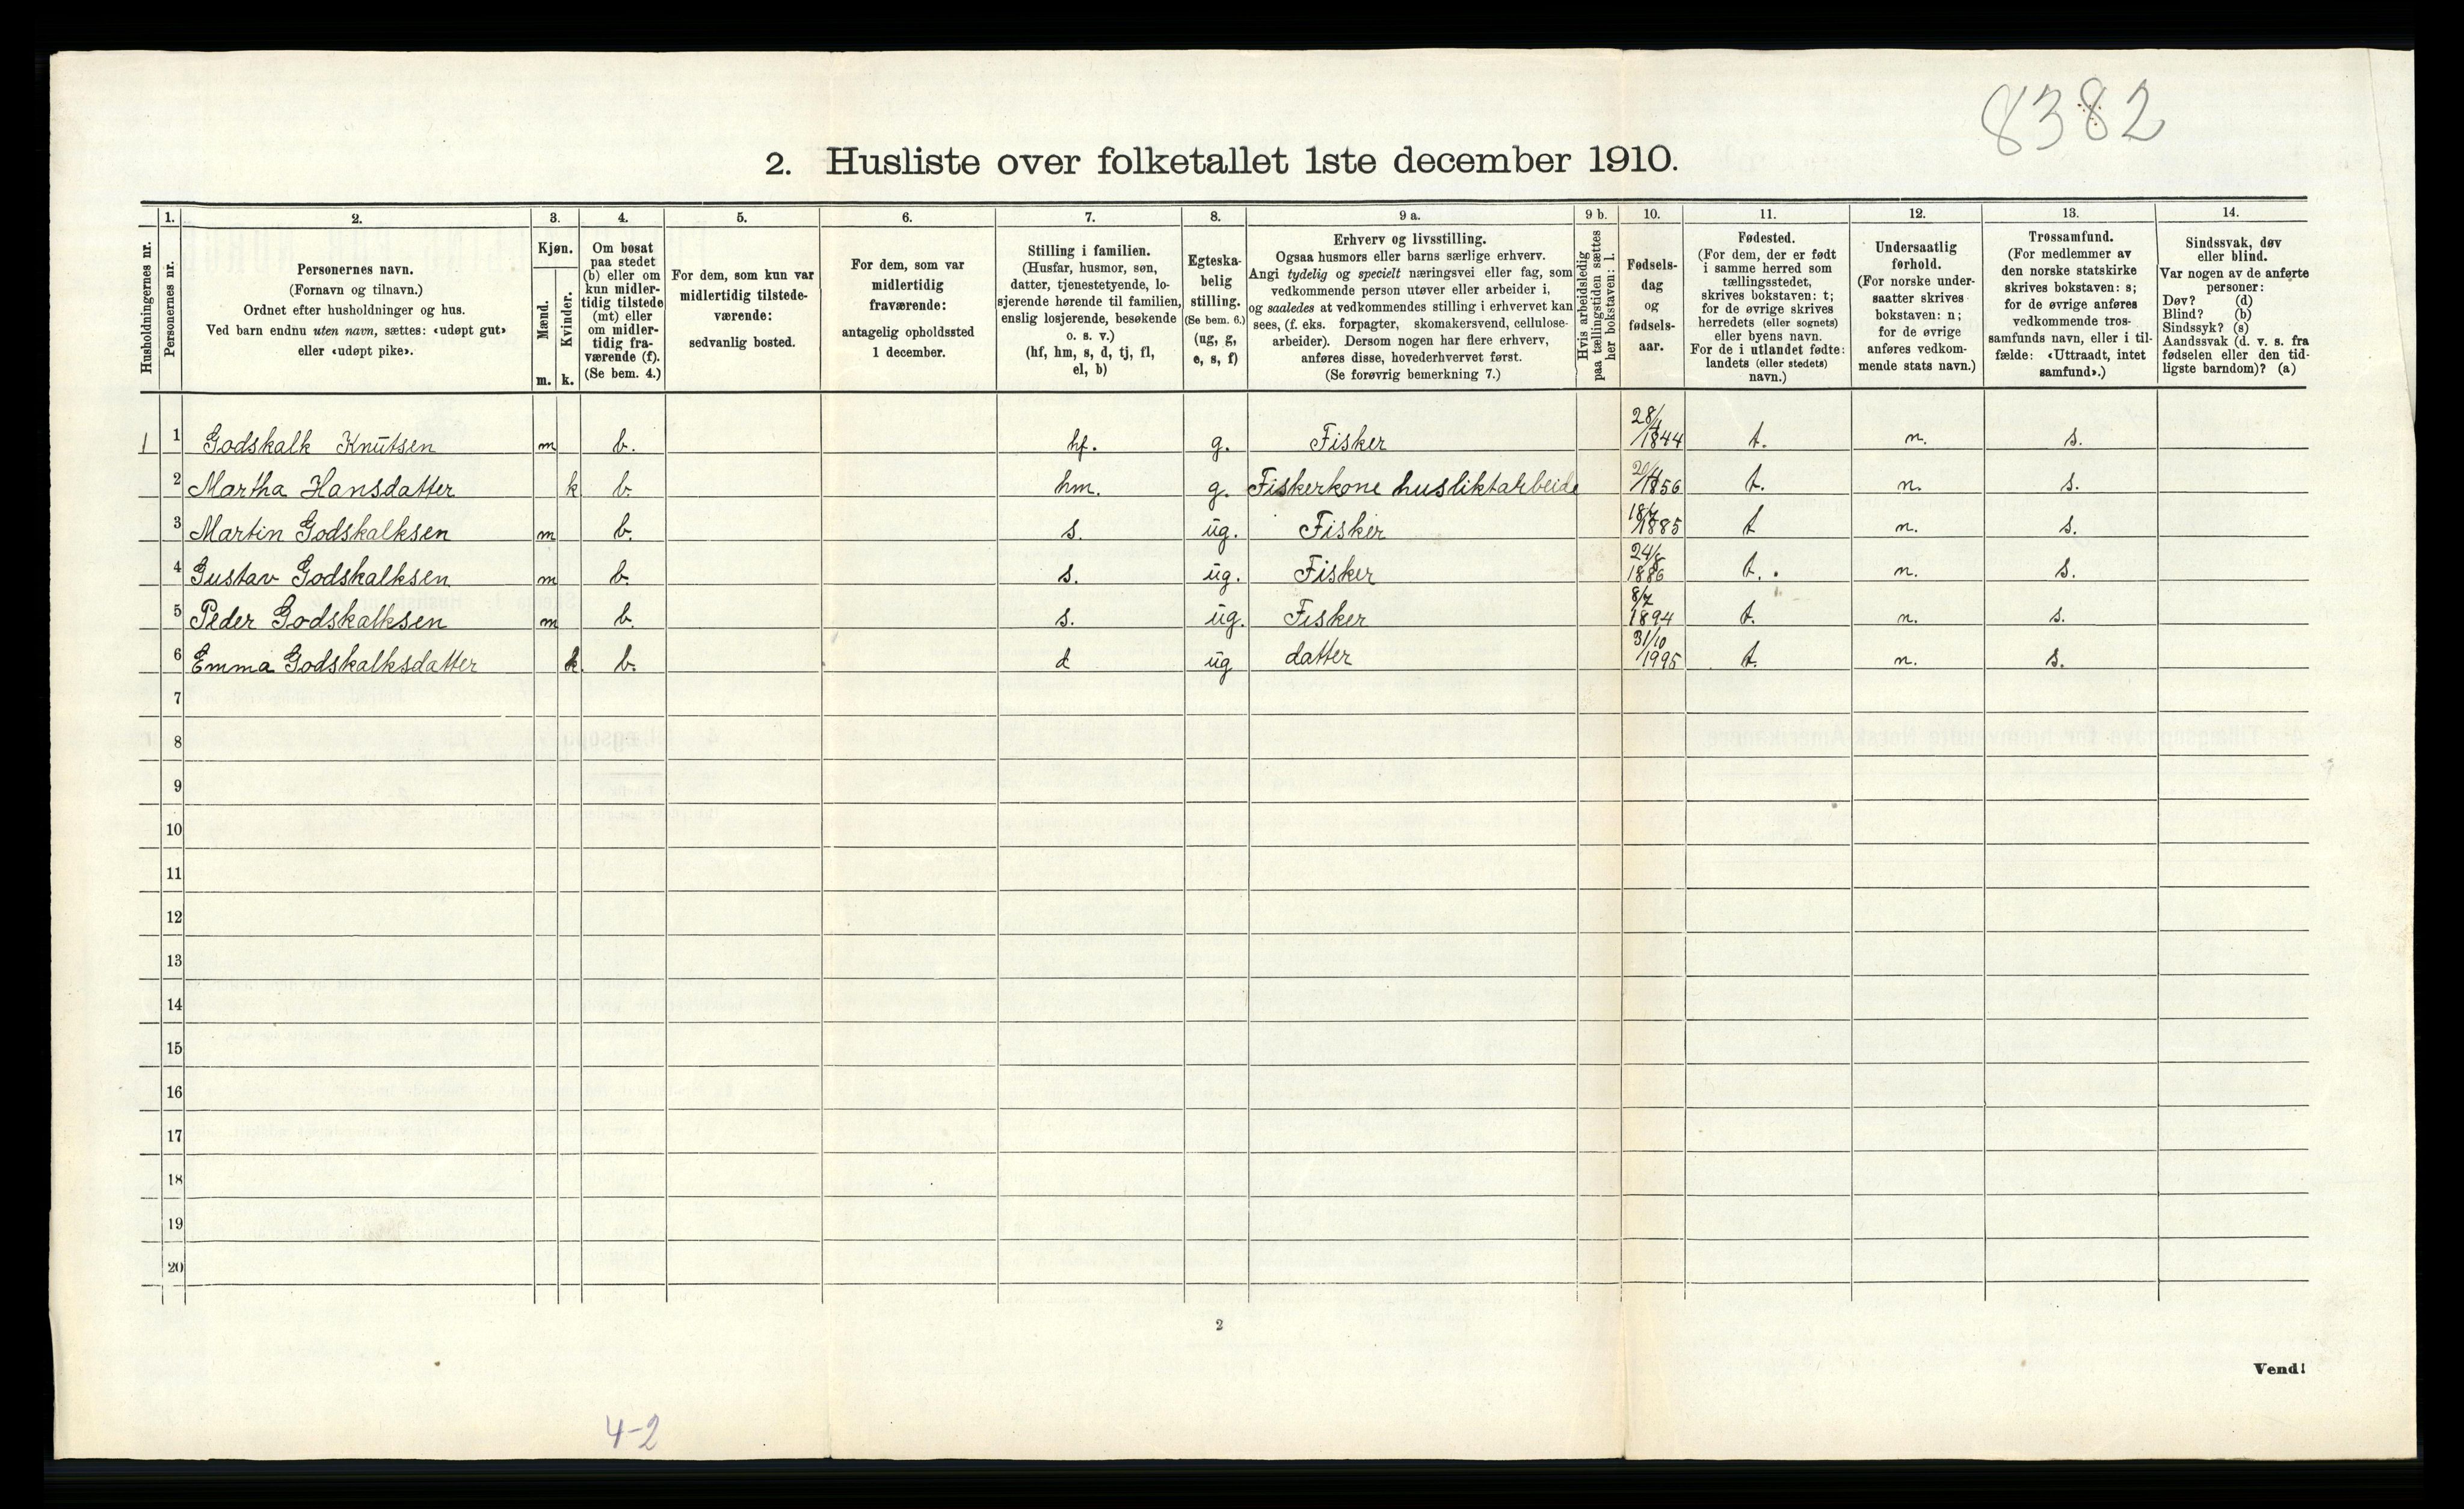 8382
2. Husliste over folketallet 1ste december 1910.
Husholdningernes nr.
1. Personernes nr.
2. Personernes navn.
(Fornavn og tilnavn.)
Ordnet efter husholdninger og hus.
Ved barn endnu uten navn, sættes: «udøpt gut»
eller «udøpt pike».
3. Kjøn.
Mænd. m.
Kvinder. k.
4. Om bosat
paa stedet
(b) eller om
kun midler-
tidig tilstede
(mt) eller
om midler-
tidig fra-
værende (f).
(Se bem. 4.)
5. For dem, som kun var
midlertidig tilstede-
værende:
sedvanlig bosted.
6. For dem, som var
midlertidig
fraværende:
antagelig opholdssted
1 december.
7. Stilling i familien.
(Husfar, husmor, søn,
datter, tjenestetyende, lo-
sjerende hørende til familien,
enslig losjerende, besøkende
o. s. v.)
(hf, hm, s, d, tj, fl,
el, b)
8. Egteska-
belig
stilling.
(Se bem. 6.)
(ug, g,
e, s, f)
9 a. Erhverv og livsstilling.
Ogsaa husmors eller barns særlige erhverv.
Angi tydelig og specielt næringsvei eller fag, som
vedkommende person utøver eller arbeider i,
og saaledes at vedkommendes stilling i erhvervet kan
sees, (f. eks. forpagter, skomakersvend, cellulose-
arbeider). Dersom nogen har flere erhverv,
anføres disse, hovederhvervet først.
(Se forøvrig bemerkning 7.)
9 b. Hvis arbeidsledig
paa tællingstiden sættes
her bokstaven: l.
10. Fødsels-
dag
og
fødsels-
aar.
11. Fødested.
(For dem, der er født
i samme herred som
tællingsstedet,
skrives bokstaven: t;
for de øvrige skrives
herredets (eller sognets)
eller byens navn.
For de i utlandet fødte:
landets (eller stedets)
navn.)
12. Undersaatlig
forhold.
(For norske under-
saatter skrives
bokstaven: n;
for de øvrige
anføres vedkom-
mende stats navn.)
13. Trossamfund.
(For medlemmer av
den norske statskirke
skrives bokstaven: s;
for de øvrige anføres
vedkommende tros-
samfunds navn, eller i til-
fælde: «Uttraadt, intet
samfund».)
14. Sindssvak, døv
eller blind.
Var nogen av de anførte
personer:
Døv? (d)
Blind? (b)
Sindssyk? (s)
Aandssvak (d. v. s. fra
fødselen eller den tid-
ligste barndom)? (a)
1 1 Godskalk Knutsen m b. hf. g. Fisker 28/4 1844 t. n. s.
2 Martha Hansdatter k b. hm. g. Fiskerkone husliktarbeide 1856 t. n. s.
3 Martin Godskalksen m b. s. ug. Fisker 18/7 1885 t n. s.
4 Gustav Godskalksen m b. s. ug. Fisker 24/8 1886 t. n. s.
5 Peder Godskalksen m b. s. ug. Fisker 8/7 1894 t. n. s.
6 Emma Godskalksdatter k. b. d ug datter 31/10 1995 t. n. s.
7
8
9
10
11
12
13
14
15
16
17
18
19
20
2
Vend!
4-2